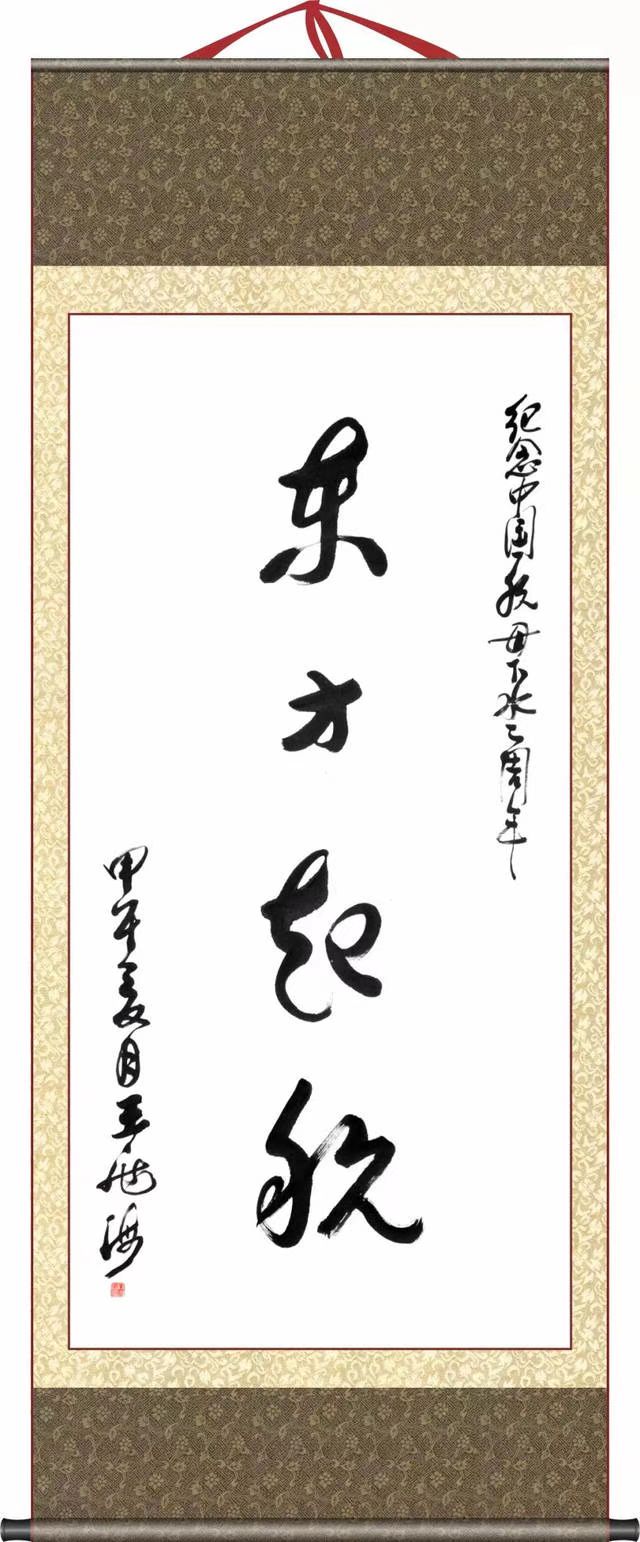 纪念中国航母下水二周年
东方起航
甲午夏月王海